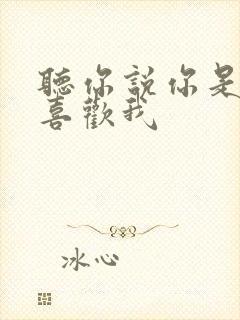 聽你說你是
喜歡我
冰心